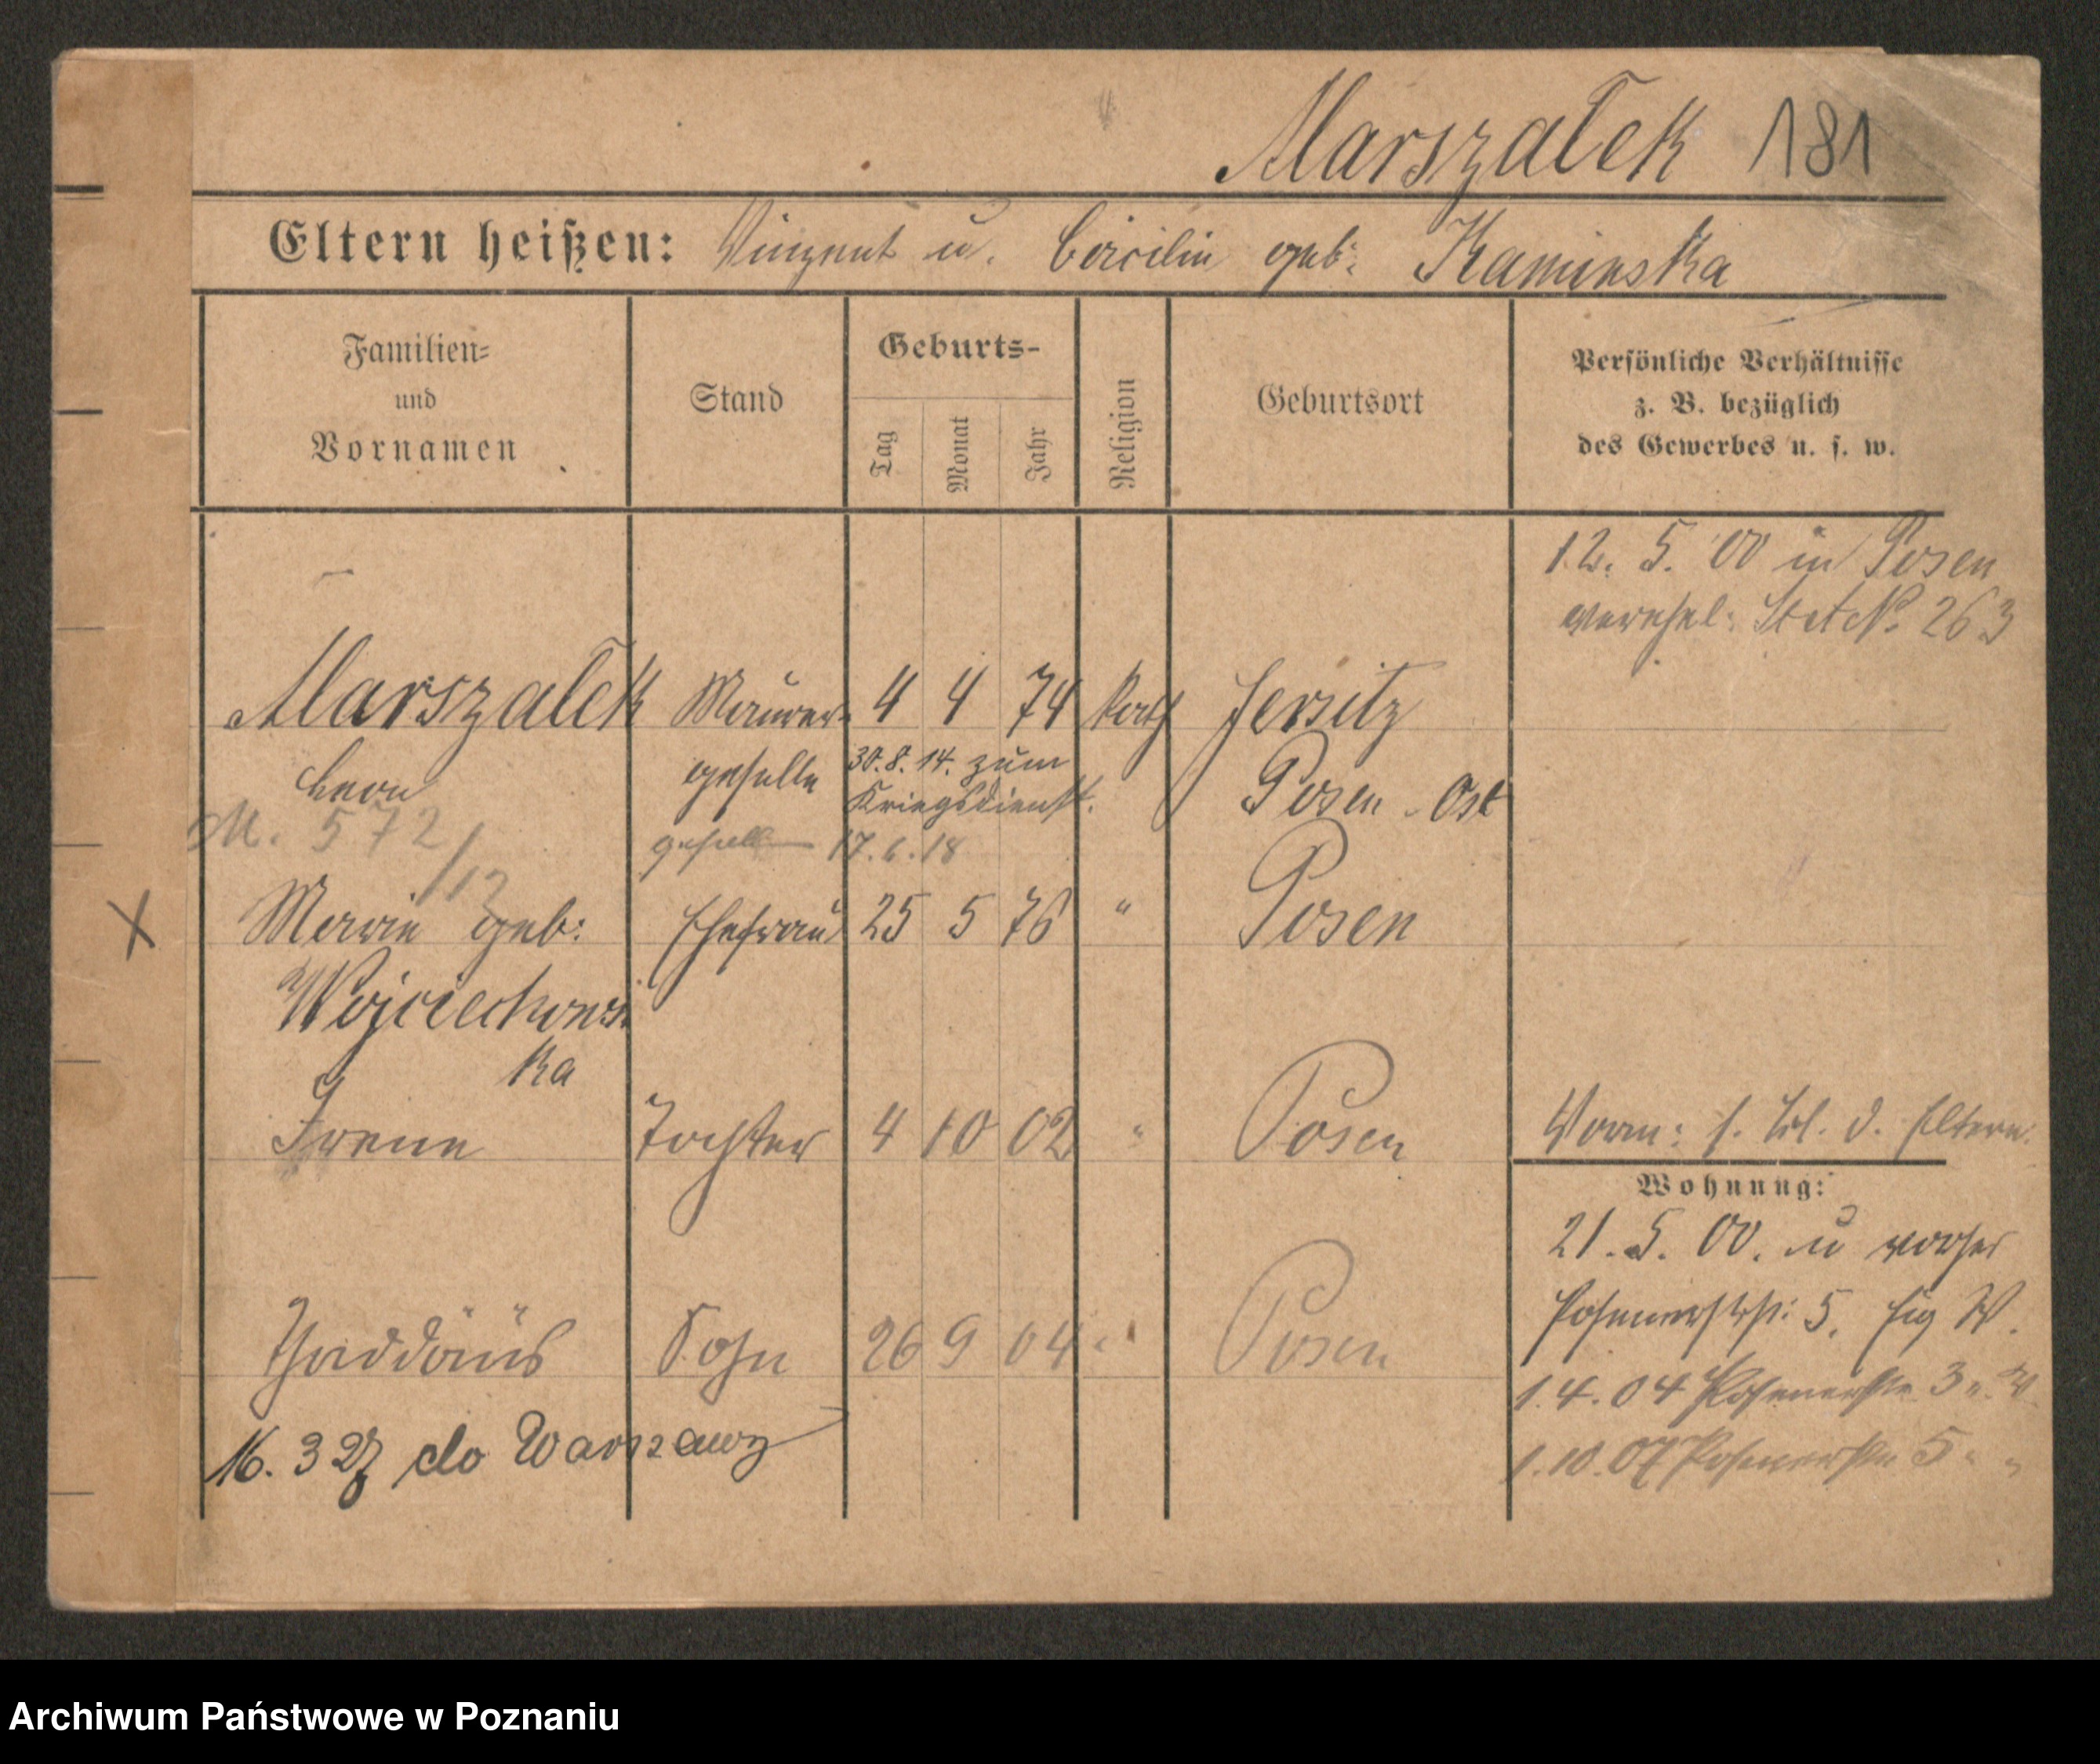 Marszałek 181
Eltern heißen: Vinzent u. Cäcilie geb: Kaminska
Familien=
und
Vornamen
Stand
Geburts-
Tag
Monat
Jahr
Religion
Geburtsort
Persönliche Verhältnisse
z. B. bezüglich
des Gewerbes u. s. w.
12. 5. 00 in Posen
verehel: St A No 263
Marszałek Maurer- 4 4 74 Kath Jersitz
Leon geselle 30.8.14. zum Posen-Ost
Kriegsdienst.
M. 572/12 gefallen 17.6.18
X Marie geb: Ehefrau 25 5 76 " Posen
Wojciechows
ka
Irene Tochter 4 10 02 " Posen
Thaddäus Sohn 26 9 04 " Posen
16. 3 27 do Warszawy
Vorm: s. Bl. d. Eltern.
Wohnung:
21. 5. 00. u vorher
Posenerstr: 5. W.
1.4.04 Posenerstr 3
1.10.07 Posenerstr 5 " "
Archiwum Państwowe w Poznaniu